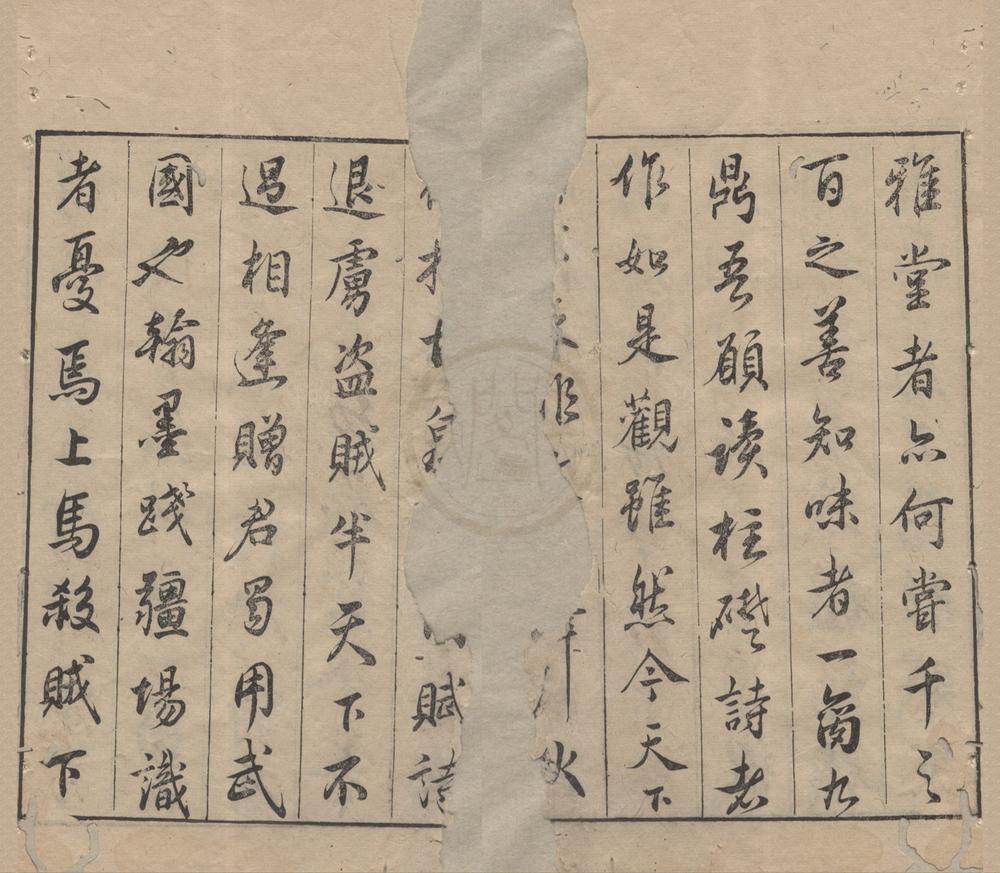 雅堂者亦何嘗千之
百之善知味者一臠九
鼎吾願讀柱礎詩者
作如是觀雖然今天下
非
賦詩
退虜盜賊半天下不
過相逢贈君蜀用武
國也翰墨踐疆場識
者憂焉上馬殺賊下